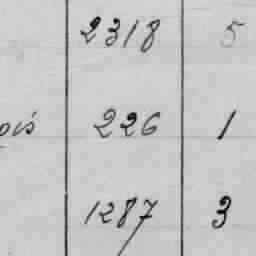 2318 5
226 1
1287 3